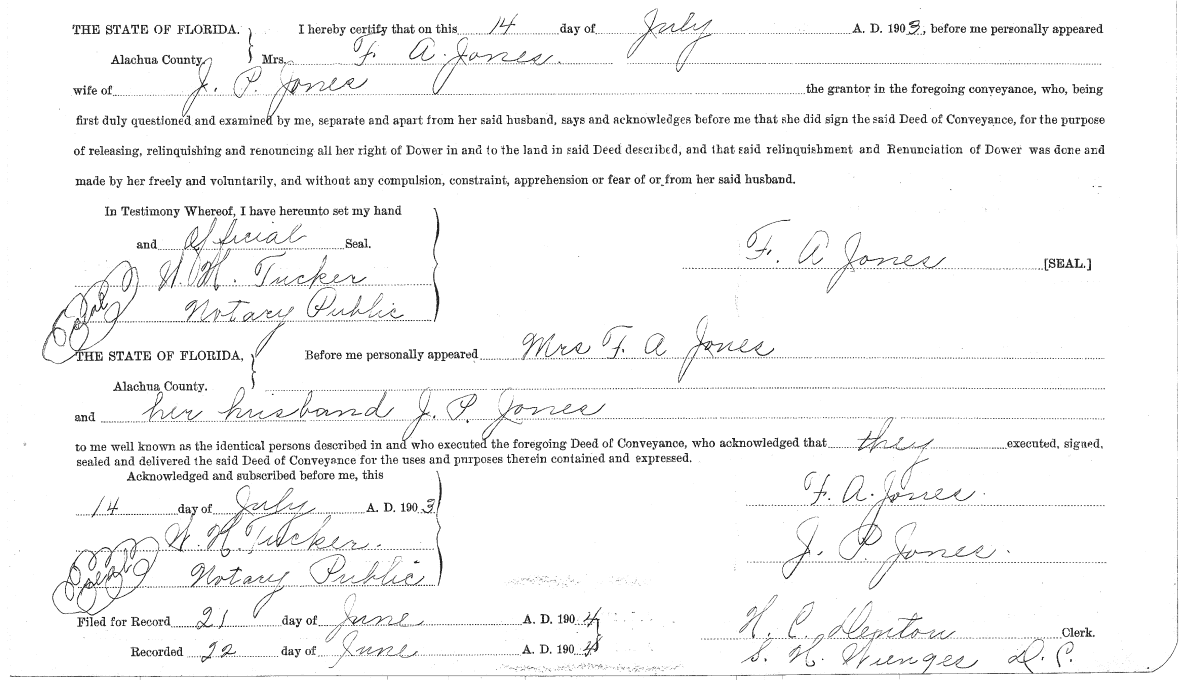 THE STATE OF FLORIDA. I hereby certify that on this 14 day of July A. D. 1903, before me personally appeared
Alachua County. Mrs. F. A. Jones.
wife of J. P. Jones the grantor in the foregoing conveyance, who, being
first duly questioned and examined by me, separate and apart from her said husband, says and acknowledges before me that she did sign the said Deed of Conveyance, for the purpose
of releasing, relinquishing and renouncing all her right of Dower in and to the land in said Deed described, and that said relinquishment and Renunciation of Dower was done and
made by her freely and voluntarily, and without any compulsion, constraint, apprehension or fear of or from her said husband.
In Testimony Whereof, I have hereunto set my hand
and official Seal.
F. A Jones [SEAL.]
W. H. Tucker
Seal
Notary Public
THE STATE OF FLORIDA, Before me personally appeared Mrs F. A Jones
Alachua County.
and her husband J. P. Jones
to me well known as the identical persons described in and who executed the foregoing Deed of Conveyance, who acknowledged that they executed, signed,
sealed and delivered the said Deed of Conveyance for the uses and purposes therein contained and expressed.
Acknowledged and subscribed before me, this
14 day of July A. D. 1903
F. A. Jones.
W. H Tucker.
J. P Jones.
Seal
Notary Public
Filed for Record 21 day of June A. D. 1904
H. C. Denton Clerk.
Recorded 22 day of June A. D. 1904
S. H. Wienges D. C.